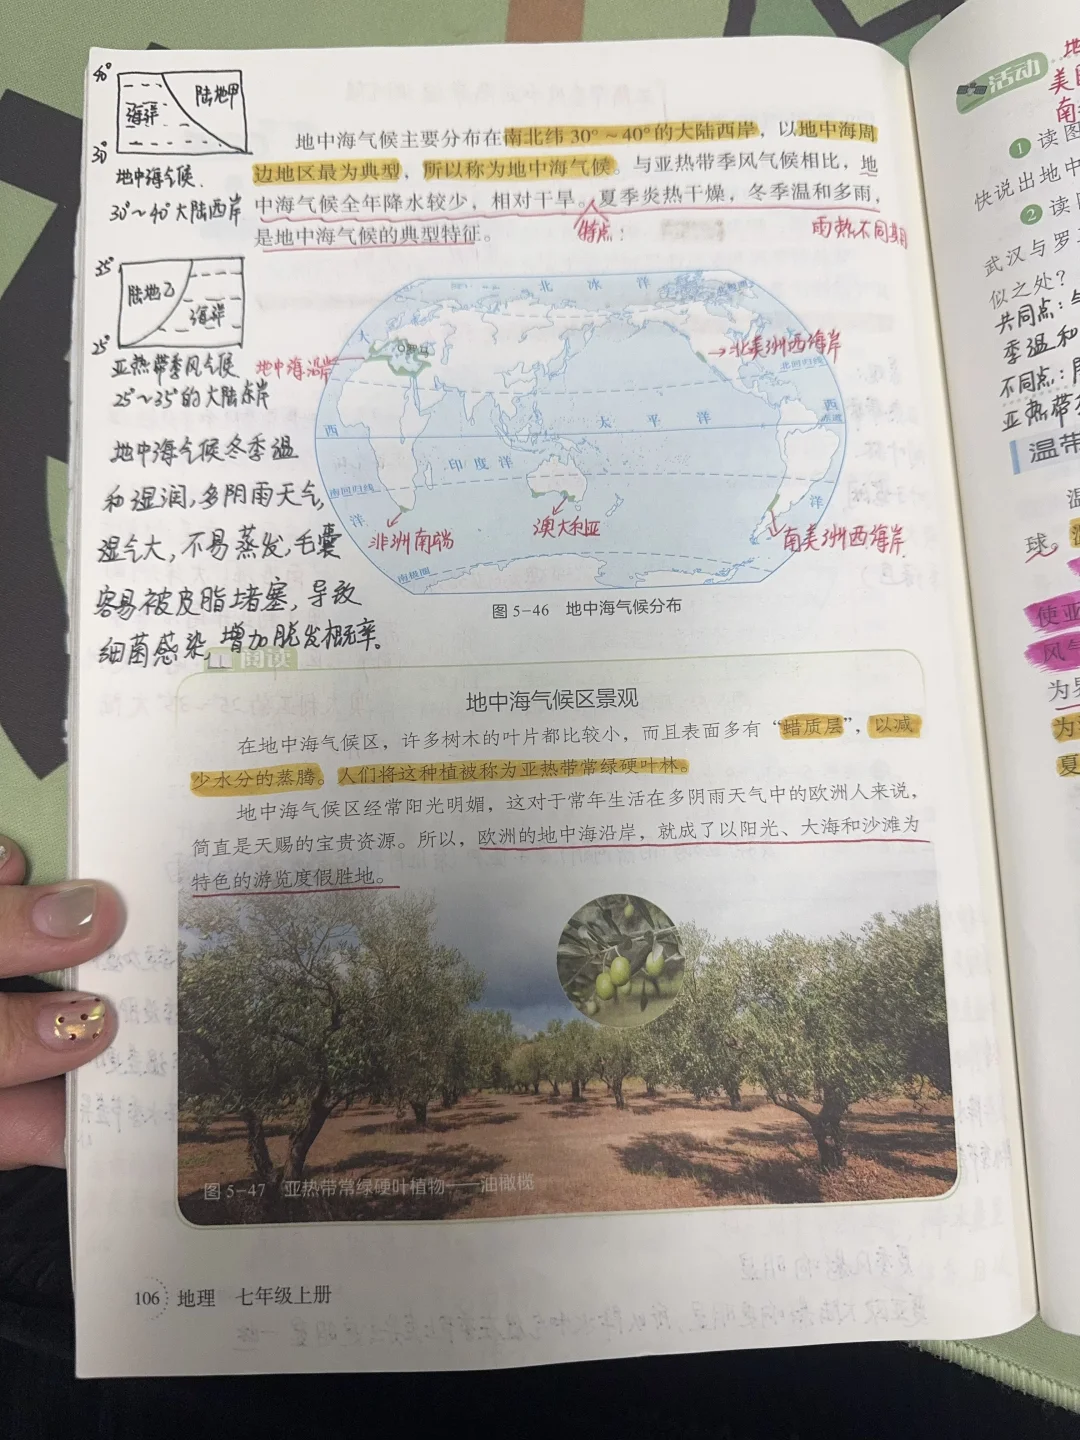 40°
海洋
陆地甲
30°
地中海气候.
30°~40°大陆西岸
35°
陆地乙
海洋
25°
亚热带季风气候
25°~35°的大陆东岸
地中海气候冬季温
和湿润,多阴雨天气,
湿气大,不易蒸发,毛囊
容易被皮脂堵塞,导致
细菌感染,增加脱发概率。
地中海气候主要分布在南北纬 30°～40°的大陆西岸，以地中海周
边地区最为典型，所以称为地中海气候。与亚热带季风气候相比，地
中海气候全年降水较少，相对干旱。夏季炎热干燥，冬季温和多雨，
是地中海气候的典型特征。
特点:
雨热不同期
北 冰 洋
大
罗马
地中海沿岸
→北美洲西海岸
北回归线
太 平 洋
西
西
印 度 洋
南回归线
洋
洋
非洲南端
澳大利亚
南美洲西海岸
南极圈
图 5-46 地中海气候分布
阅读
地中海气候区景观
在地中海气候区，许多树木的叶片都比较小，而且表面多有“蜡质层”，以减
少水分的蒸腾。人们将这种植被称为亚热带常绿硬叶林。
地中海气候区经常阳光明媚，这对于常年生活在多阴雨天气中的欧洲人来说，
简直是天赐的宝贵资源。所以，欧洲的地中海沿岸，就成了以阳光、大海和沙滩为
特色的游览度假胜地。
图 5-47 亚热带常绿硬叶植物——油橄榄
106 地理 七年级上册
活动
地
美
南
1 读图
快说出地中
2 读
武汉与罗
似之处?
共同点:
季温和
不同点:
亚热带
温带
温
球。
使亚
风气
为
为
夏